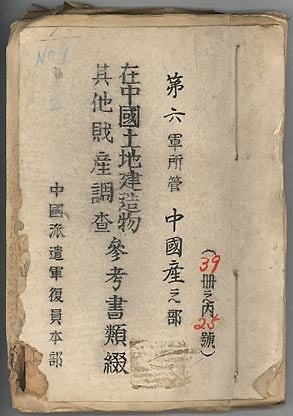 No 9
第六軍所管 中國産之部
(39册之内25號)
在中國土地建造物
其他財産調査
參考書類綴
中國派遣軍復員本部